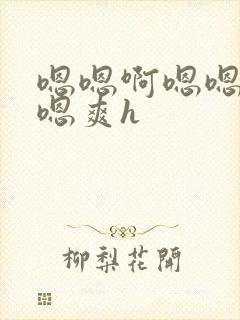 嗯嗯啊嗯嗯
嗯爽h
柳梨花開